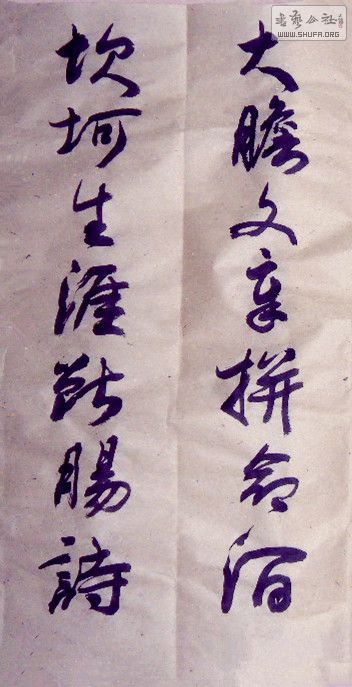 大膽文章拼命酒
坎坷生涯斷腸詩
書藝公社
WWW.SHUFA.ORG